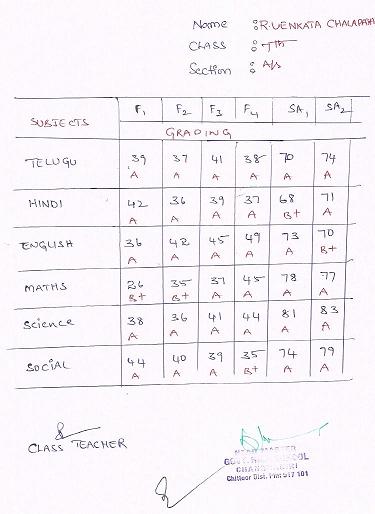 Name : R. VENKATA CHALAPATHI
CLASS : 7th
Section : A/s
SUBJECTS F1 F2 F3 F4 SA1 SA2
GRADING
TELUGU 39 37 41 38 70 74
A A A A A A
HINDI 42 36 39 37 68 71
A A A A B+ A
ENGLISH 36 42 45 49 73 70
A A A A A B+
MATHS 26 35 37 45 78 77
B+ B+ A A A A
Science 38 36 41 44 81 83
A A A A A A
SOCIAL 44 40 39 35 74 79
A A A B+ A A
CLASS TEACHER
HEAD MASTER
GOVT. HIGH SCHOOL
Chittoor Dist. Pin: 517 101